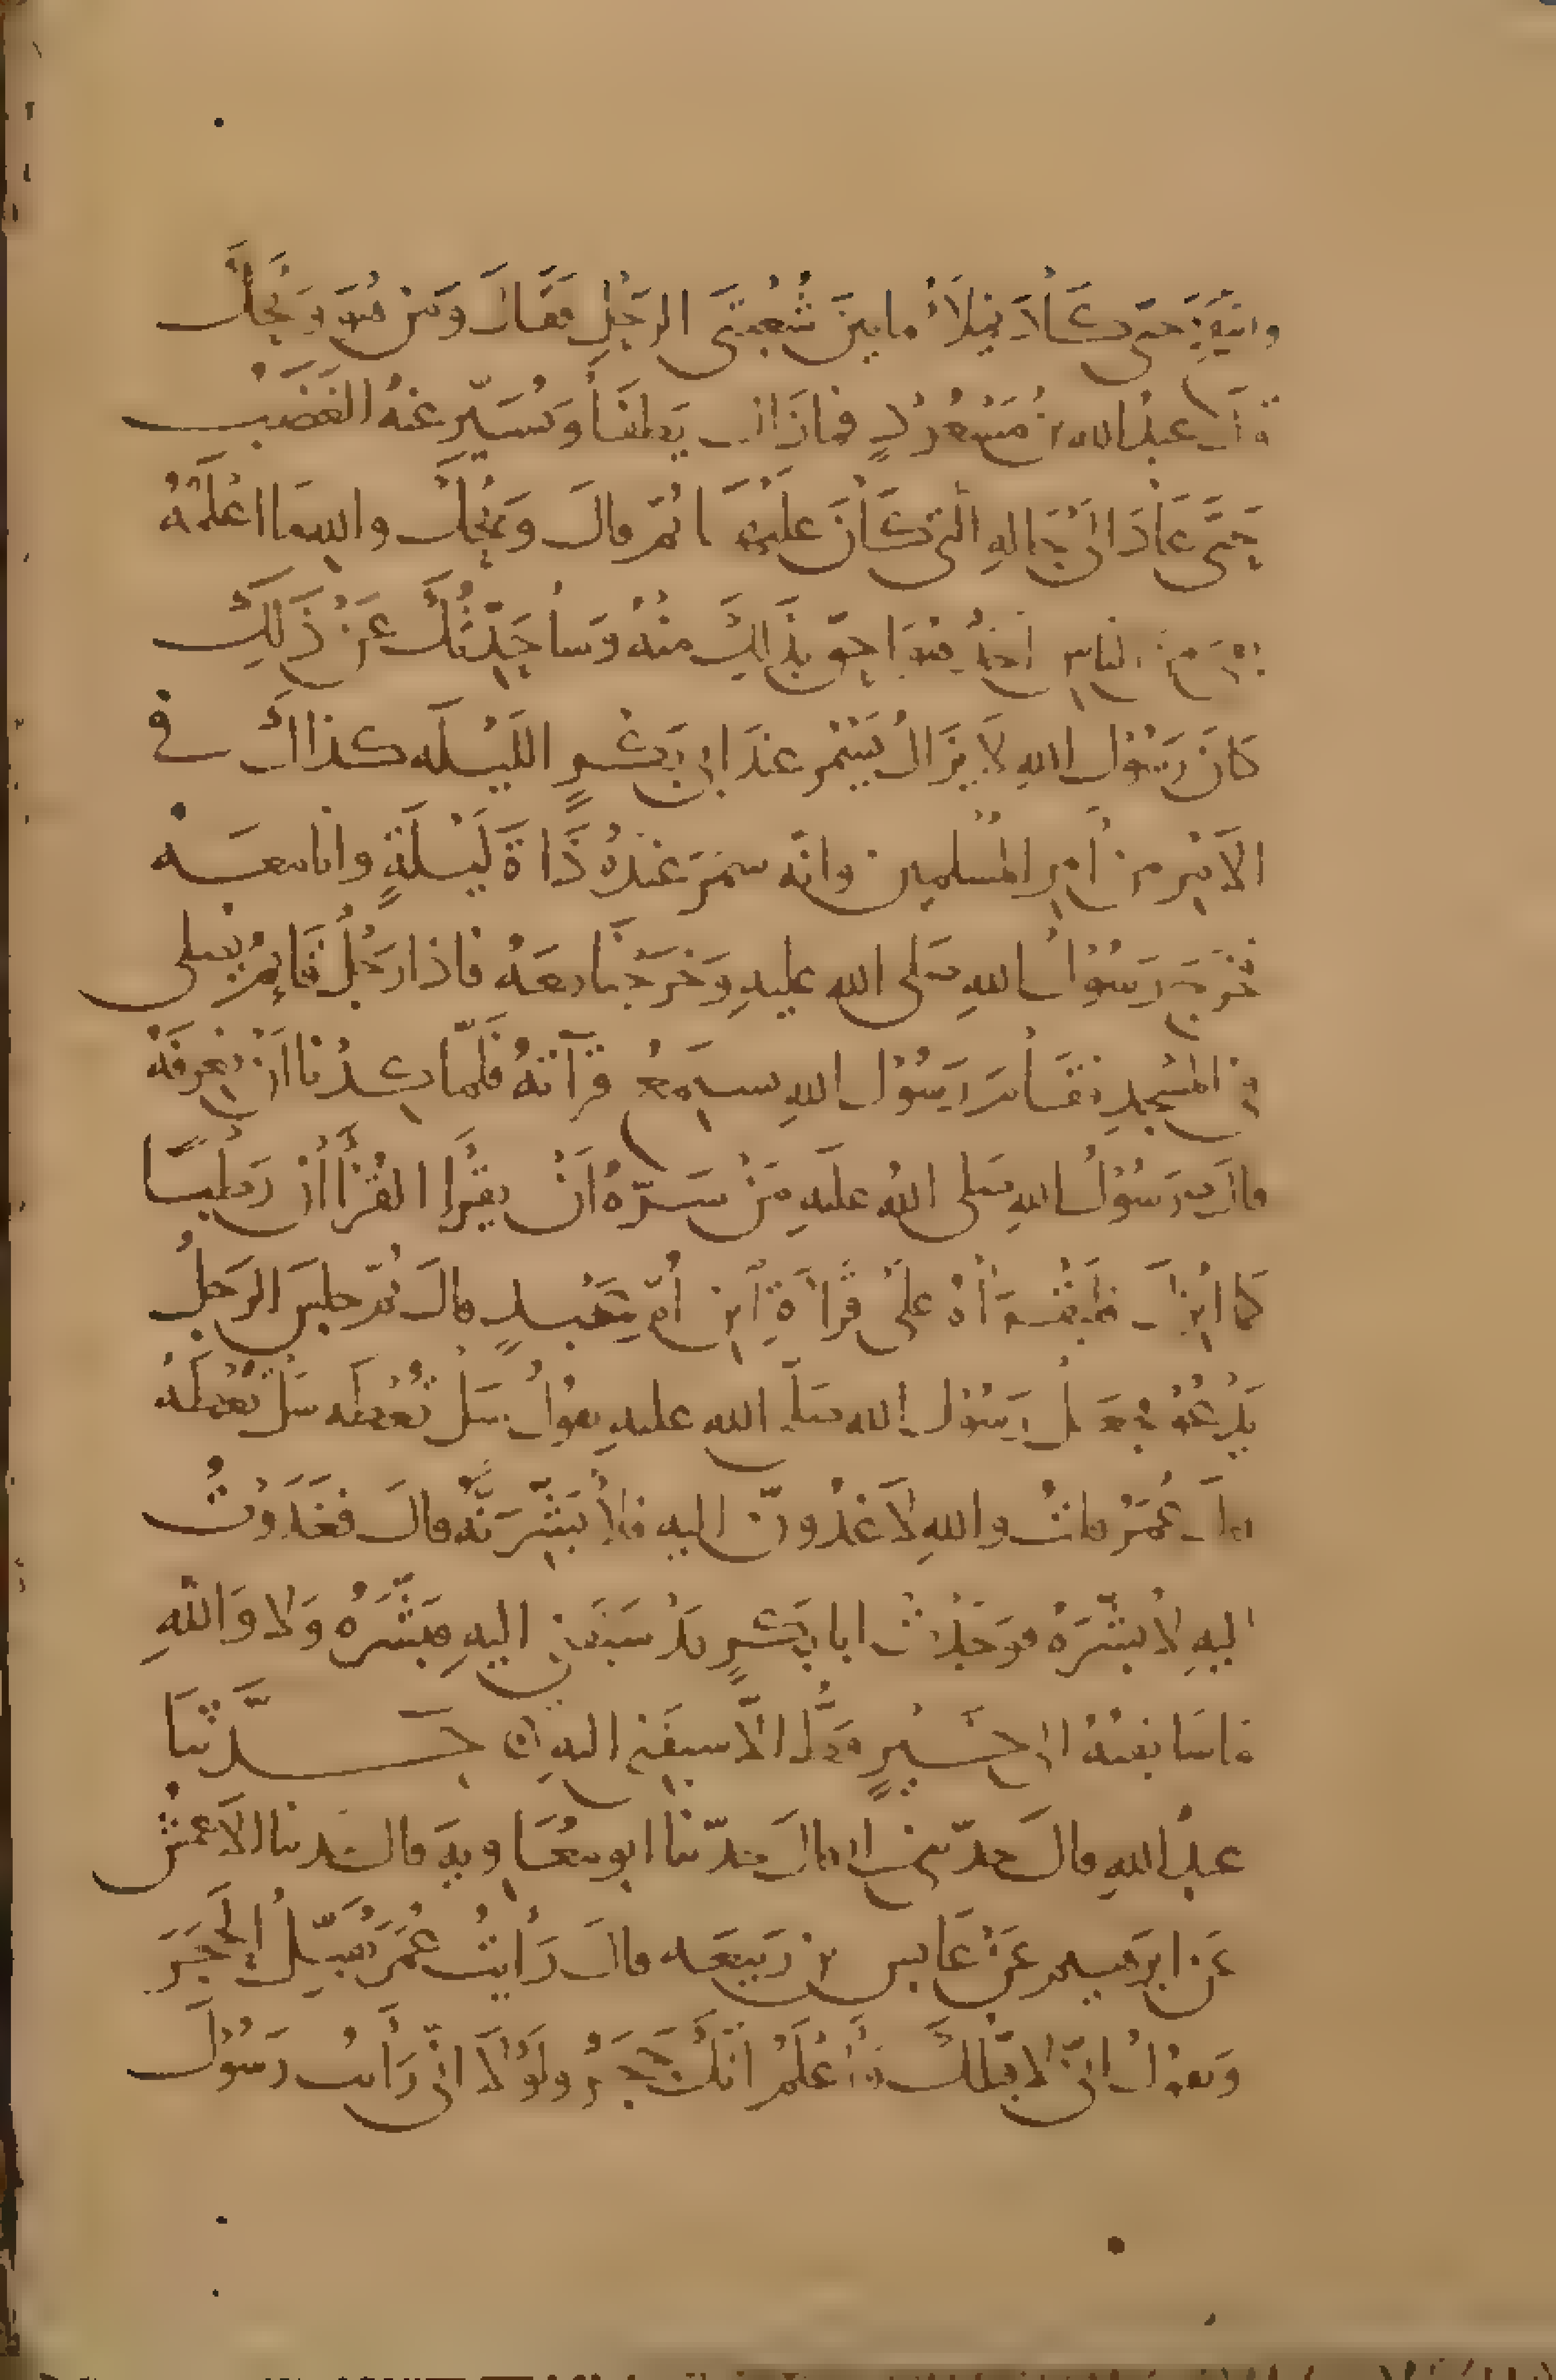 وانتفخ حتى كاد يملأ ما بين شعبتي الرجل فقال ومن هو ويحك
قال عبد الله بن مسعود فما زال يطفأ ويسير عنه الغضب
حتى عاد الى حاله التي كان عليها ثم قال ويحك والله ما اعلمه
بقي من الناس احد هو احق بذلك منه وسأحدثك عن ذلك
كان رسول الله لا يزال يسمر عند ابي بكر الليله كذاك في
الامر من أمر المسلمين وانه سمر عنده ذاة ليلة وانا معه
فخرج رسول الله صلى الله عليه وخرجنا معه فاذا رجل قايم يصلى
في المسجد فقام رسول الله يستمع قرآته فلما كدنا ان نعرفه
قال رسول الله صلى الله عليه من سره أن يقرأ القرأان رطبا
كما أنزل فليقرأه على قرأة ابن أم عبد قال ثم جلس الرجل
يدعو فجعل رسول الله صلى الله عليه يقول سل تعطه سل تعطه
قال عمر قلت والله لاغدون اليه فلأبشرنه قال فغدوت
اليه لأبشره فوجدت ابا بكر قد سبقني اليه فبشره ولا والله
ما سابقته الى خير قط الا سبقني اليه حدثنا
عبد الله قال حدثني ابي قال حدثنا ابو معاويه قال حدثنا الأعمش
عن ابرهيم عن عابس بن ربيعه قال رأيت عمر يقبل الحجر
ويقول اني لاقبلك وأعلم أنك حجر ولولا اني رأيت رسول